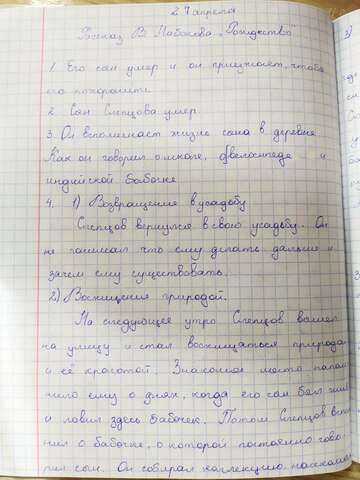 27 апреля
Рассказ В. Набокова „Рождество"
1. Его сын умер и он приезжает, чтобы
его похоронить
2. Сын Слепцова умер
3. Он вспоминает жизнь сына в деревне
Как он говорил о школе, о велосипеде и
индийской бабочке
4. 1) Возвращение в усадьбу
Слепцов вернулся в свою усадьбу. Он
не понимал что ему делать дальше и
зачем ему существовать.
2) Восхищение природой.
На следующее утро Слепцов вышел
на улицу и стал восхищаться природой
и её красотой. Знакомое место напом
нило ему о днях, когда его сын был жив
и ловил здесь бабочек. Потом Слепцов вспом
нил о бабочке, о которой постоянно гово
рил сын. Он собирал коллекцию насеком
3)